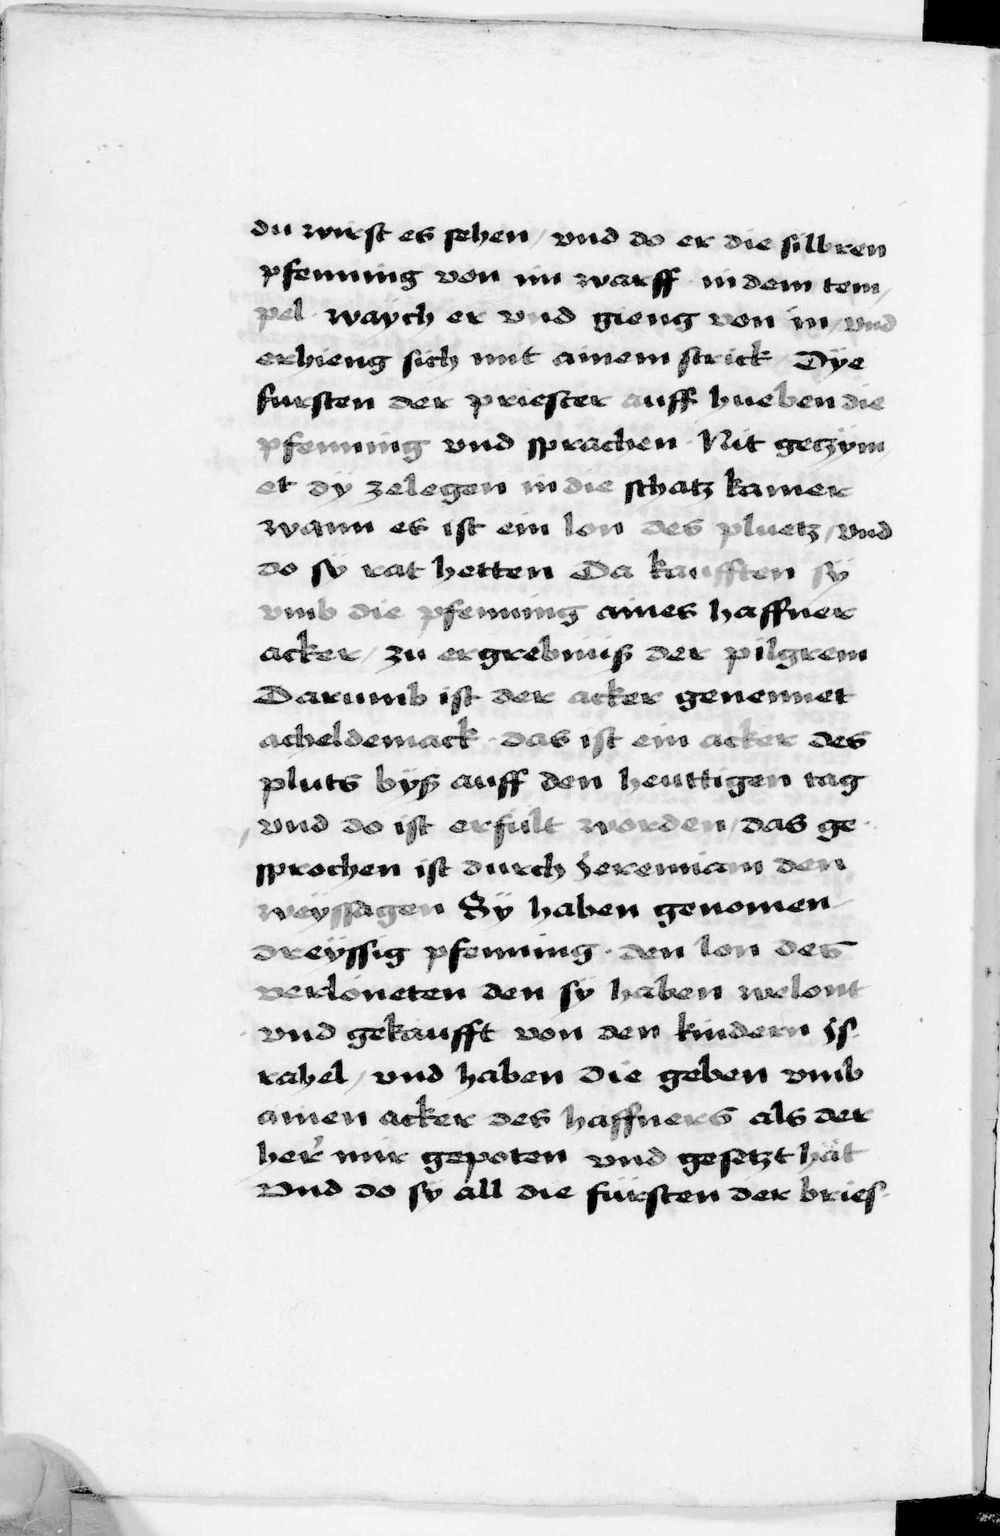 du wirst es sehen / vnd do er die silbren
pfenning von im warff in dem tem /
pel · waÿch er vnd gieng von in / vnd
erhieng sich mit ainem strick / Dÿe
fursten der priester auff hueben die
pfenning vnd sprachen · Nit geczÿm /
et dÿ zelegen in die schatz kamer
wann es ist ein lon des pluetz / vnd
do sÿ rat hetten Da kaufften sÿ
vmb die pfenning aines haffner
acker / zu ergrebnüß der pilgrem
Darumb ist der acker genennet
acheldemack · das ist ein acker des
pluts bÿß auff den heuttigen tag
vnd do ist erfült worden / das ge ·
sprochen ist durch Jeremiam den
weÿssagen Sÿ haben genomen
dreÿssig pfenning · den lon des
verlöneten den sÿ haben welont
vnd gekaufft von den kindern ÿs ·
rahel / vnd haben die geben vmb
ainen acker des haffners als der
her mir gepoten vnd gesetzt hät
Vnd do sÿ all die fürsten der bries ·